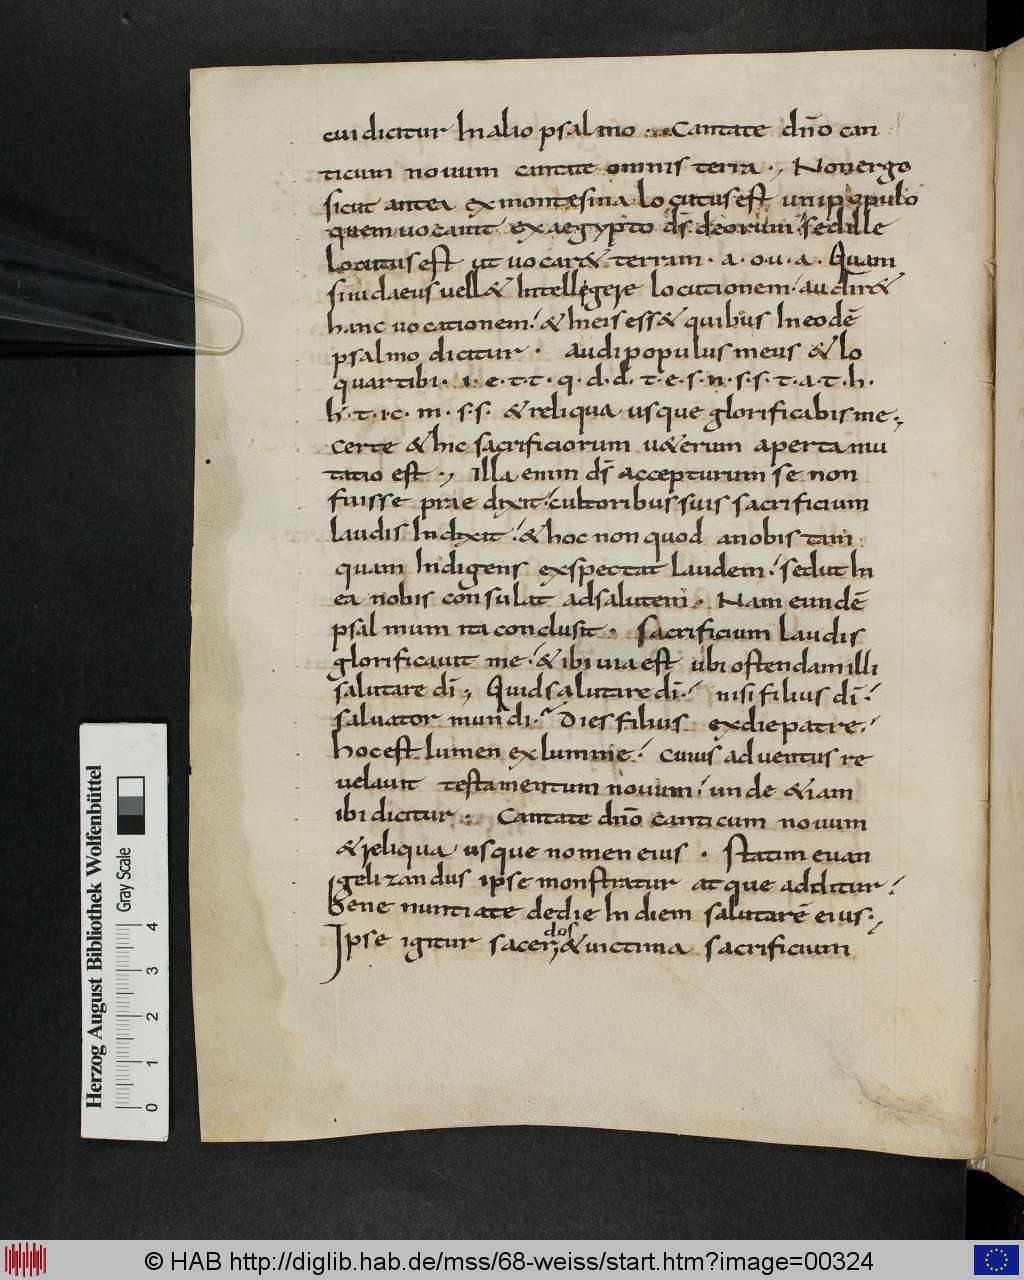 cui dicitur In alio psalmo . Cantate dn̄o can
ticum nouum cantate omnis terra . Non ergo
sicut antea ex monte sina locutus est uni populo
quem uocauit ex aegypto ds̄ deorum sed ille
locutus est ut uocar& terram · a · o · u · a · Quam
si iudaeus uell& Intellegere locutionem audir&
hanc uocationem & In eis ess& quibus In eodē
psalmo dicitur · audi populus meus & lo
quar tibi · i · e · t · t · q · d · d · t · e · s · n · s · s · t · a · t · h ·
h · t · i · c · m · s · s · & reliqua usque glorificabis me
certe & hic sacrificiorum u&erum aperta mu
tatio est . Illa enim ds̄ accepturum se non
fuisse praedixit cultoribus suis sacrificium
laudis Indixit & hoc non quod a nobis tam
quam Indigens exspectat laudem sed ut In
ea nobis consulat ad salutem . Nam eundē
psalmum ita conclusit · sacrificium laudis
glorificauit me & ibi uia est ubi ostendam illi
salutare dī , Quid salutare dī nisi filius dī
saluator mundi Dies filius ex die patre
hoc est lumen ex lumine cuius aduentus re
uelauit testamentum nouum unde & iam
ibi dicitur . Cantate dn̄o canticum nouum
& reliqua usque nomen eius · statim euan
gelizandus ipse monstratur atque additur
Bene nuntiate de die In diem salutarē eius
dos
Ipse igitur sacer & uictima sacrificium
Herzog August Bibliothek Wolfenbüttel
Gray Scale
0 1 2 3 4
© HAB http://diglib.hab.de/mss/68-weiss/start.htm?image=00324